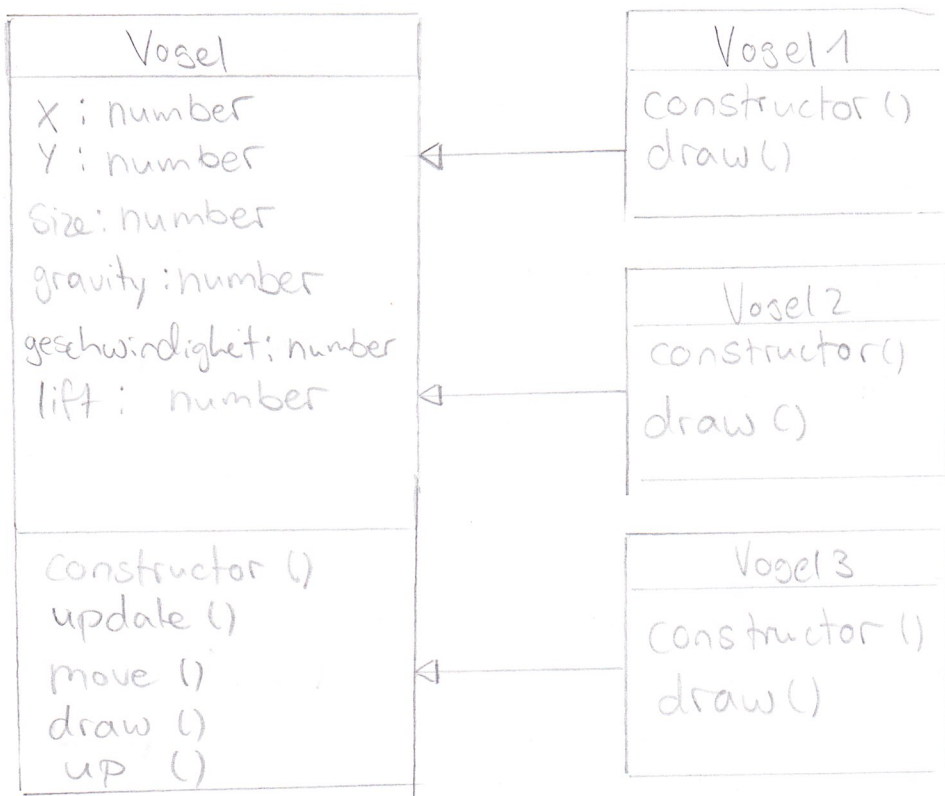 Vogel
X : number
Y : number
Size: number
gravity : number
geschwindigkeit: number
lift : number
constructor ()
update ()
move ()
draw ()
up ()
Vogel 1
constructor ()
draw ()
Vogel 2
constructor ()
draw ()
Vogel 3
constructor ()
draw ()